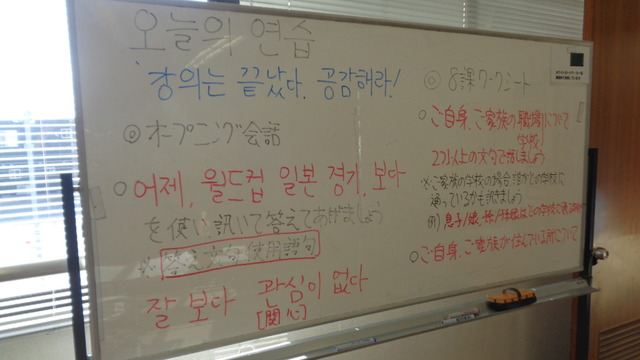 오늘의 연습
창의는 끝났다. 공감해라!
◎ オープニング会話
○ 어제, 월드컵 일본 경기, 보다
を使い、訊いて答えてあげましょう
※ 答え文句 使用語句
잘 보다 관심이 없다
[関心]
◎ 8課ワークシート
○ ご自身、ご家族の職場について
学校
2つ以上の文句で話しましょう
※ご家族の学校の場合、誰がどの学校に
通っているかも訊きましょう
例) 息子/娘、
○ご自身、ご家族が住んでいる所について